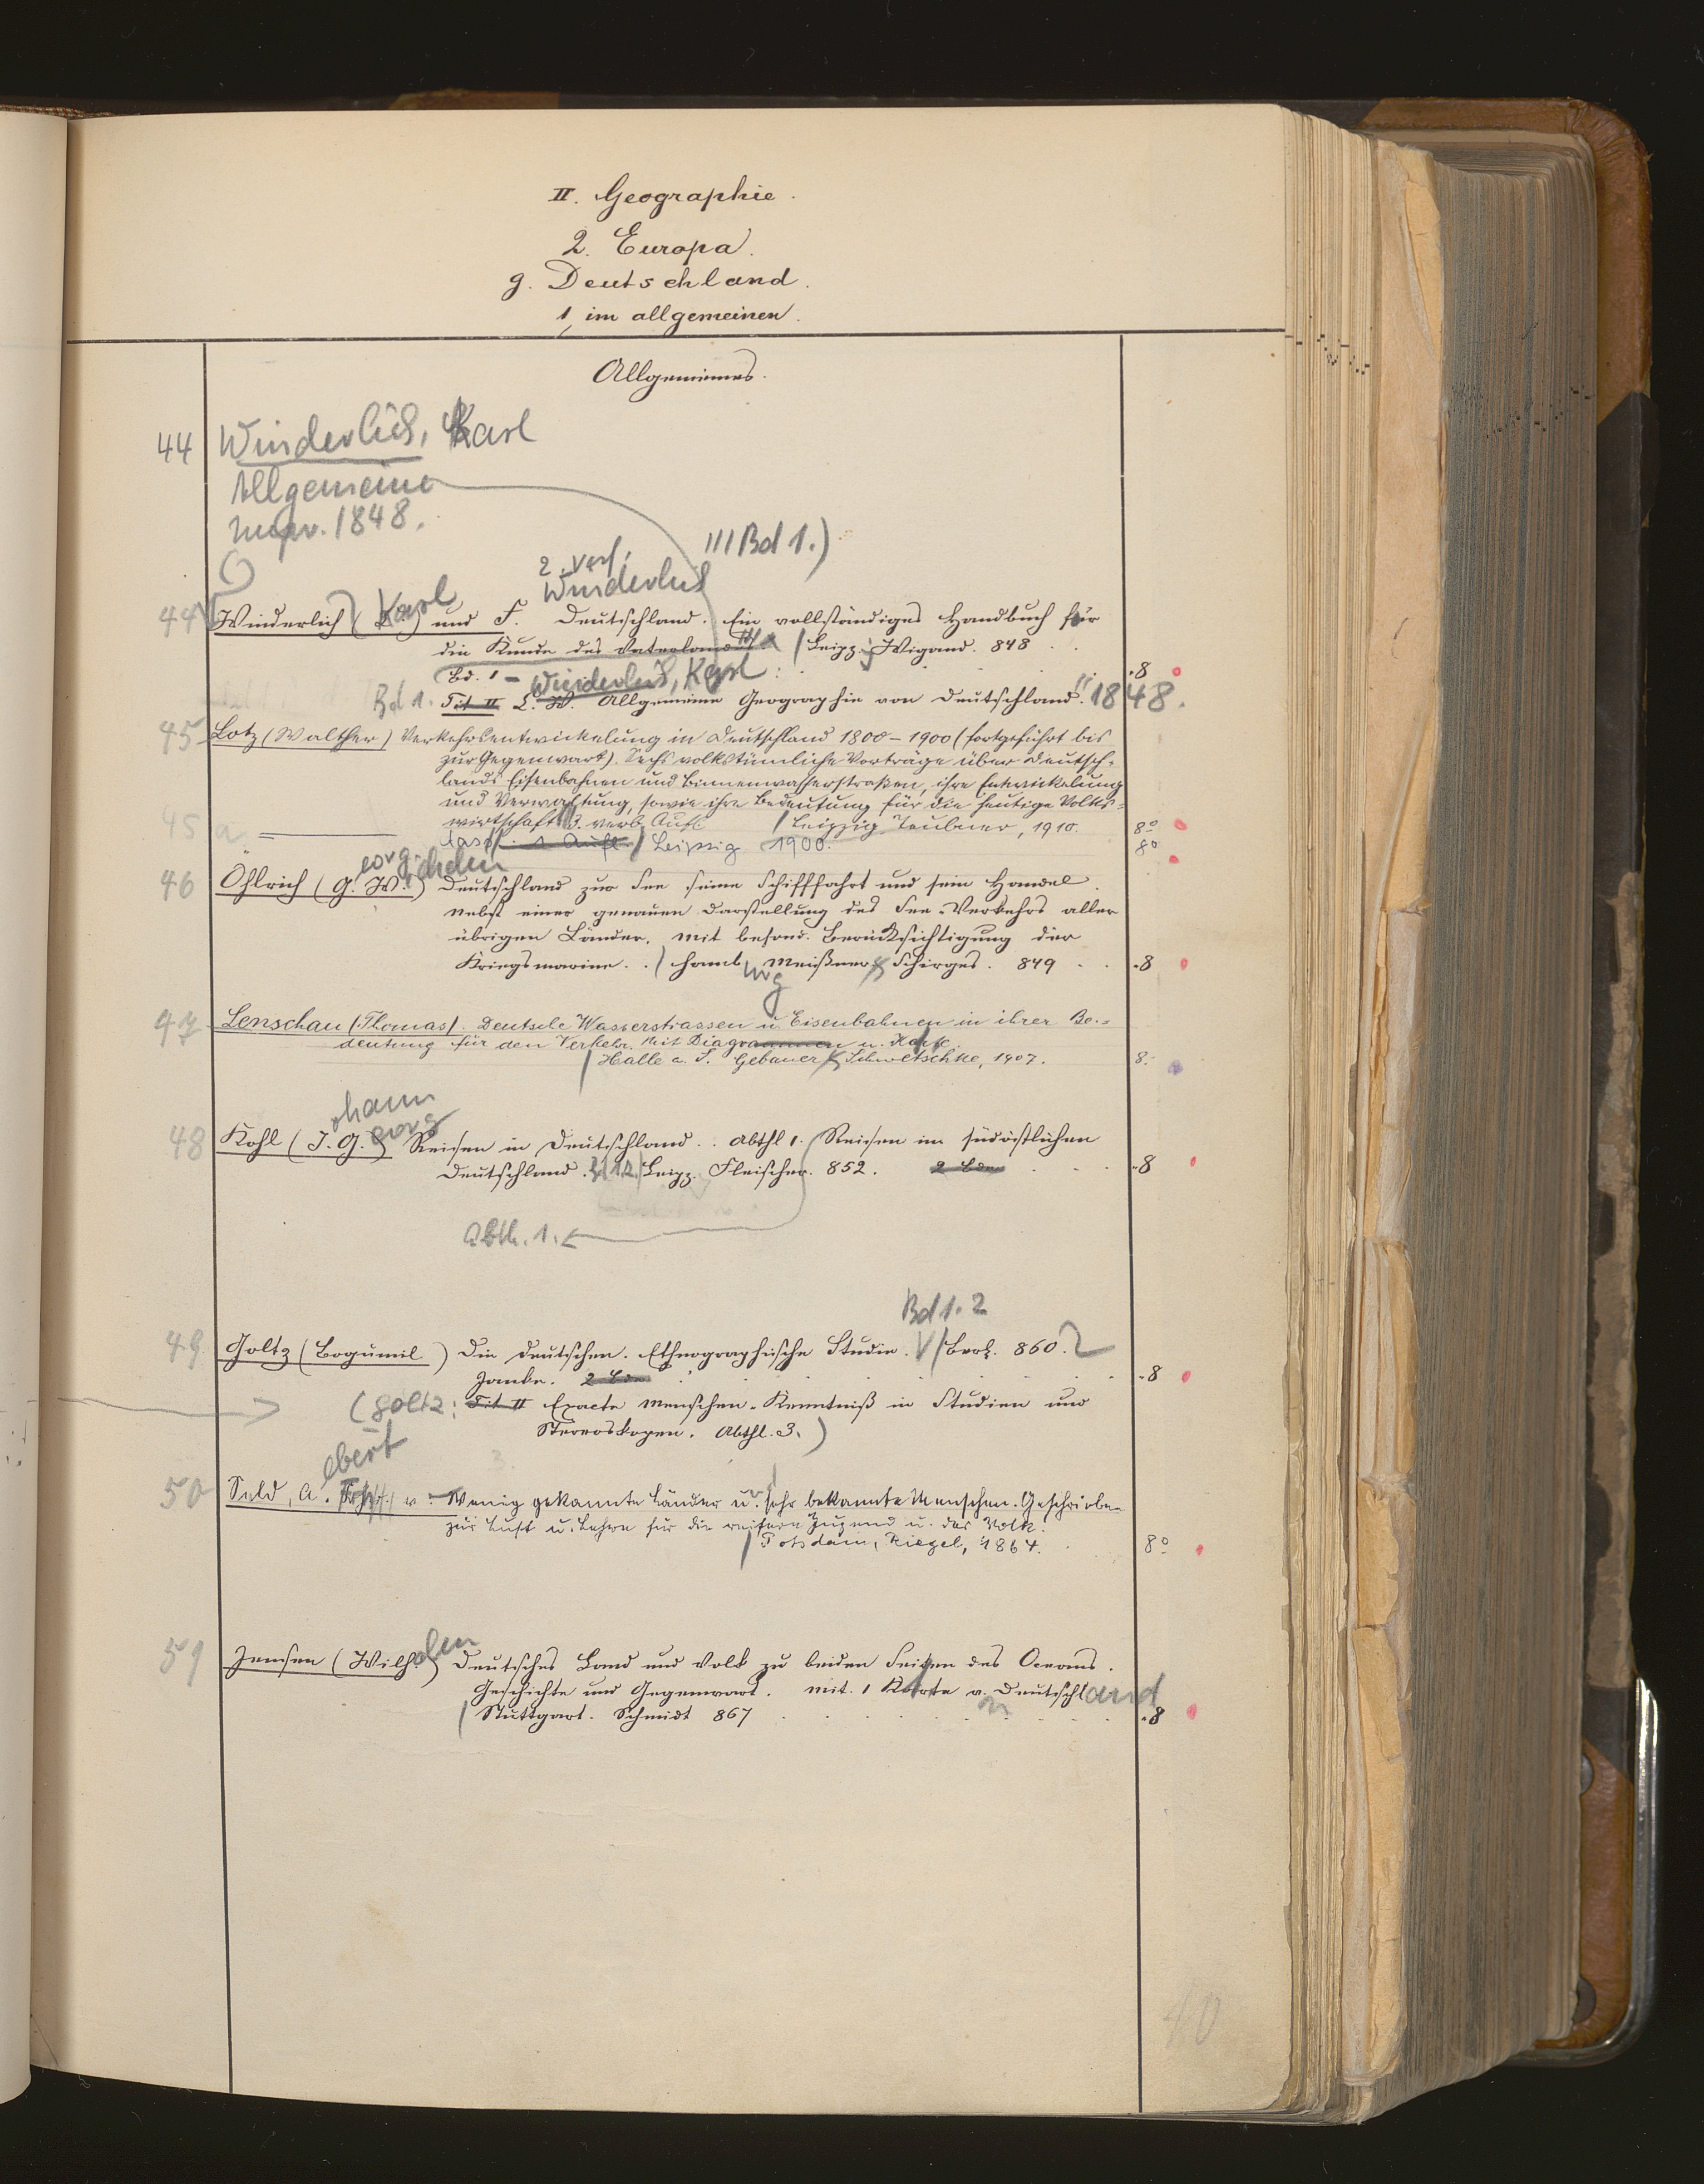 II. Geographie.
2. Europa.
g. Deutschland.
1, im allgemeinen.
Allgemeines.
44 Winderlich, Karl
Allgemeine
1848.
III Bd 1.)
2. Verf.
Winderlich
44 Winderlich (Karl) und F. Deutschland. Ein vollständiges Handbuch für
die Kunde des Vaterlandes / Leipz. Wigand. 848
Bd. 1 - Winderlich, Karl : .8
Bd 1. Tit II L. W. Allgemeine Geographie von Deutschland. 1848.
45 Lotz (Walther) Verkehrsentwickelung in Deutschland 1800-1900 (fortgeführt bis
zur Gegenwart). Sechs volkstümliche Vorträge über Deutsch-
lands Eisenbahnen und Binnenwasserstraßen, ihre Entwickelung
und Verwaltung, sowie ihre Bedeutung für die heutige Volks-
wirtschaft 3. verb. Aufl. / Leipzig Teubner, 1910. 8°
45 a — dass. 1 Aufl. / Leipzig 1900. 8°
eorg ilhelm
46 Öhlrich (G. W.) Deutschland zur See seine Schifffahrt und sein Handel.
Nebst einer genauen Darstellung des See-Verkehrs aller
übrigen Länder, mit besond. Berücksichtigung der
Kriegsmarine. / Hamb. Meißner & Schirges. 849 .8
urg
47 Lenschau (Thomas). Deutsche Wasserstrassen u. Eisenbahnen in ihrer Be-
deutung für den Verkehr. Mit Diagrammen u. Karte.
/ Halle a. S. Gebauer & Schwetschke, 1907. 8.
ohann
eorg
48 Kohl (J. G.) Reisen in Deutschland. Abthl 1. Reisen im südöstlichen
Deutschland. Bd 1.2. / Leipz. Fleischer. 852. 2 Bde .8
Abth. 1. ←
Bd 1. 2
49 Goltz (Bogumil) Die Deutschen. Ethnographische Studie. / Berl. 860.
Janke. 2 Bde .8
(Goltz: Tit II Exacte Menschen-Kenntniß in Studien und
Stereoskopen. Abthl. 3.)
lbert
50 Seld, A. Frhr. v. - Wenig gekannte Länder u. sehr bekannte Menschen. Geschrieben
zur Lust u. Lehre für die reifere Jugend u. das Volk.
/ Potsdam, Riegel, 1864. 8°
51 Jensen (Wilh.) Deutsches Land und Volk zu beiden Seiten des Oceans.
Geschichte und Gegenwart. Mit 1 Karte v. Deutschland
/ Stuttgart. Schmidt 867 .8
10